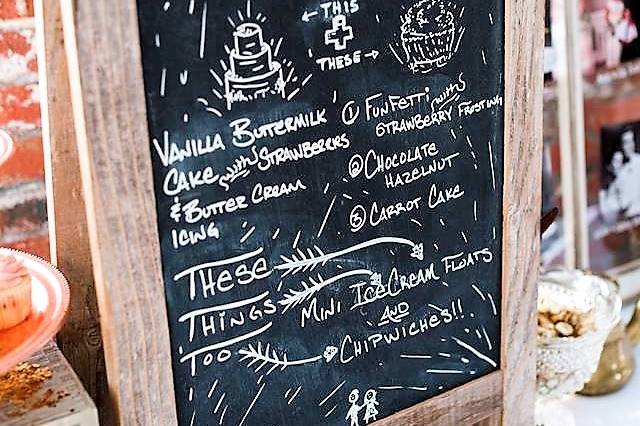 ← THIS
+
THESE →
VANILLA BUTTERMILK
CAKE with STRAWBERRIES
& BUTTER CREAM
ICING
① FUNFETTI with
STRAWBERRY FROSTING
② CHOCOLATE
HAZELNUT
③ CARROT CAKE
THESE
THINGS
TOO
MINI ICE CREAM FLOATS
AND
CHIPWICHES!!